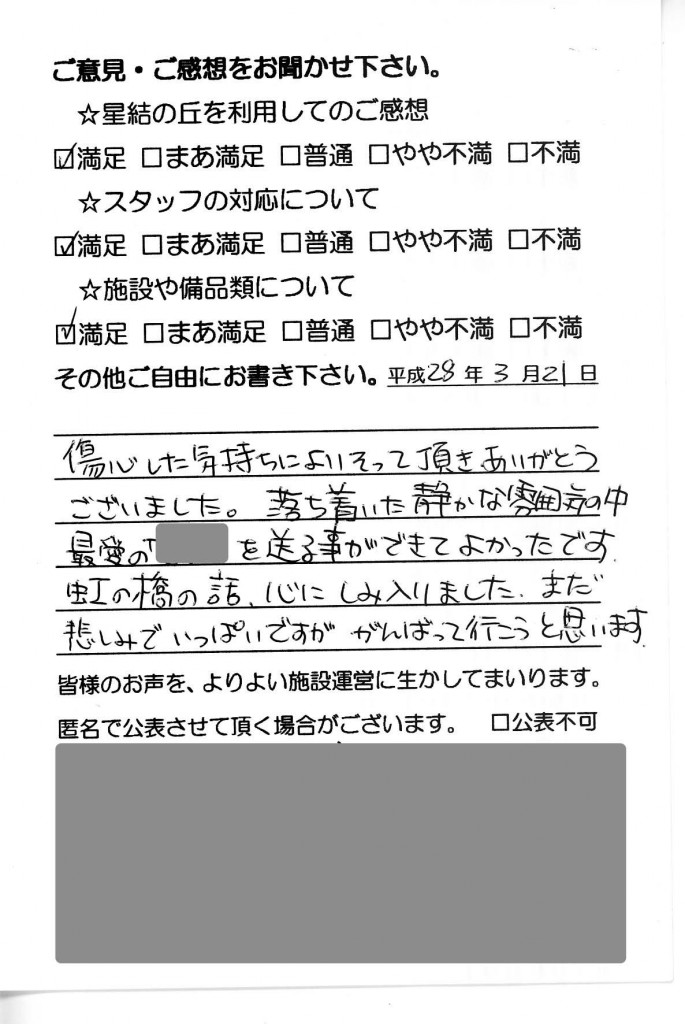 ご意見・ご感想をお聞かせ下さい。
☆星結の丘を利用してのご感想
☑満足 □まあ満足 □普通 □やや不満 □不満
☆スタッフの対応について
☑満足 □まあ満足 □普通 □やや不満 □不満
☆施設や備品類について
☑満足 □まあ満足 □普通 □やや不満 □不満
その他ご自由にお書き下さい。平成28年3月21日
傷心した気持ちによりそって頂きありがとう
ございました。落ち着いた静かな雰囲気の中
最愛の「 を送る事ができてよかったです.
虹の橋の話、心にしみ入りました. まだ
悲しみでいっぱいですががんばって行こうと思います.
皆様のお声を、よりよい施設運営に生かしてまいります。
匿名で公表させて頂く場合がございます。 □公表不可